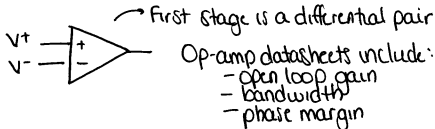 First stage is a differential pair
V+
+
V-
-
Op-amp datasheets include:
- open loop gain
- bandwidth
- phase margin